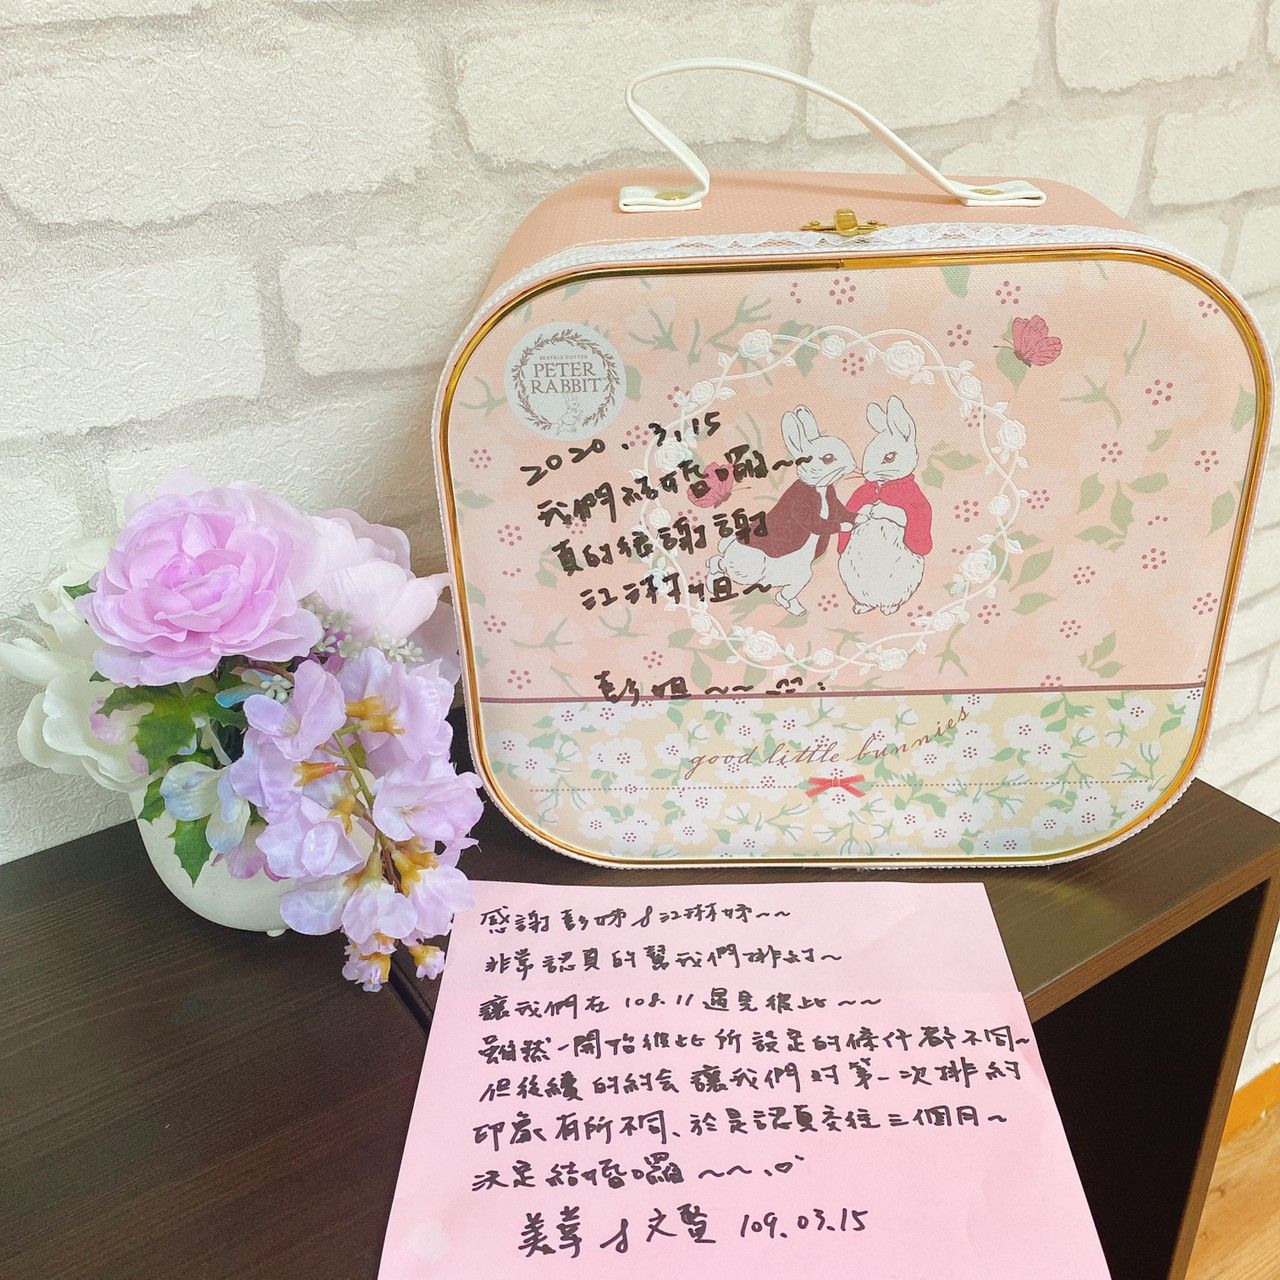 BEATRIX POTTER
PETER
RABBIT
2020.3.15
我們結婚囉~~
真的很謝謝
江琳姐~
彭姐~~
good little bunnies
感謝彭姊&江琳姊~~
非常認真的幫我們排約~
讓我們在108.11遇見彼此~~
雖然一開始彼此所設定的條件都不同~
但後續的約會讓我們對第一次排約
印象有所不同、於是認真交往三個月~
決定結婚囉~~
美葦&文賢 109.03.15